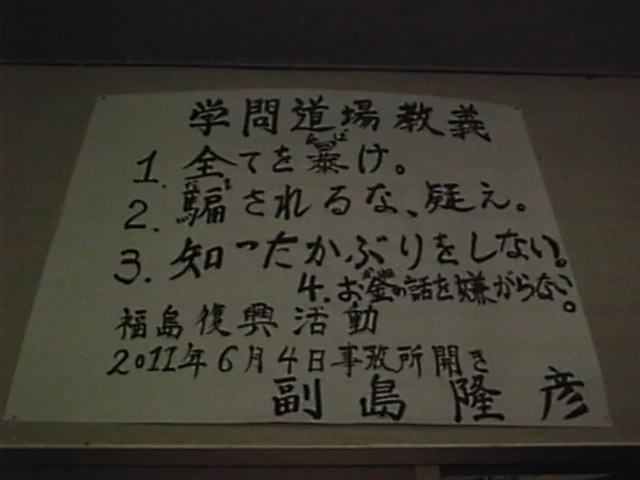 学問道場教義
1. 全てを暴け。
2. 騙されるな、疑え。
3. 知ったかぶりをしない。
4. お金の話を嫌がらない。
福島復興活動
2011年6月4日事務所開き
副島隆彦